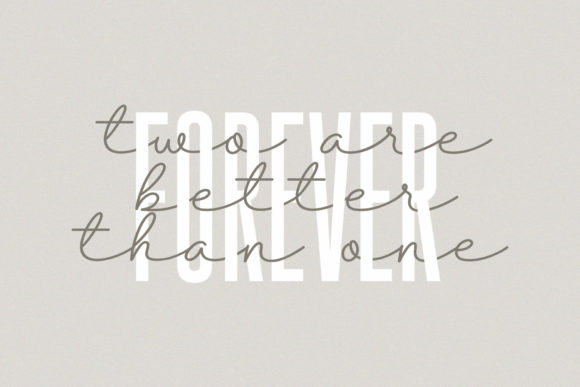 FOREVER
two are
better
than one